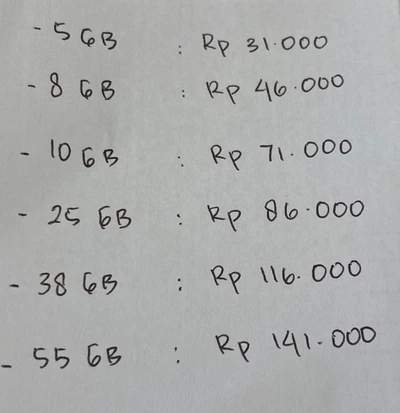 - 5 GB : Rp 31.000
- 8 GB : Rp 46.000
- 10 GB : Rp 71.000
- 25 GB : Rp 86.000
- 38 GB : Rp 116.000
- 55 GB : Rp 141.000